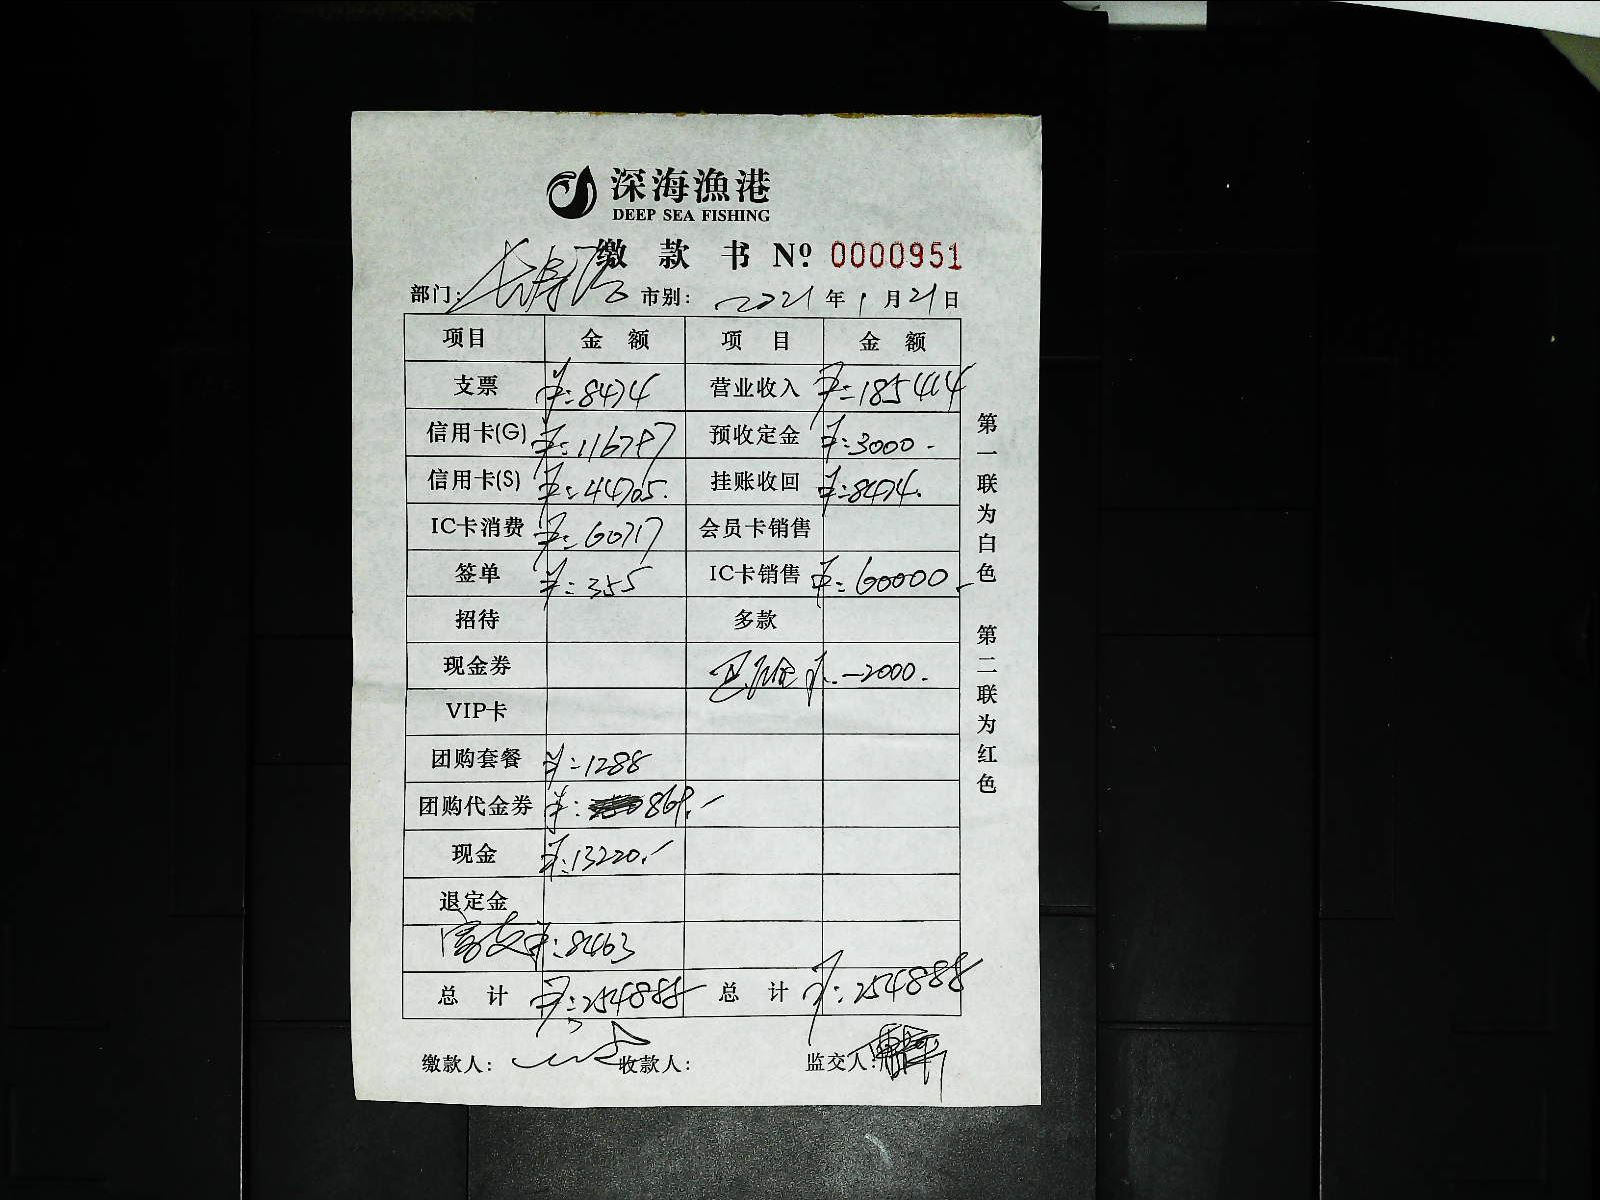 深海渔港
DEEP SEA FISHING
缴 款 书 Nº 0000951
部门: 长寿路 市别: 2021 年 1 月 21 日
项目 金 额 项 目 金 额
支票 ¥:8474 营业收入 ¥:185414
信用卡(G) ¥:116797 预收定金 ¥:3000.-
信用卡(S) ¥:44705. 挂账收回 ¥:8474.
IC卡消费 ¥:60717 会员卡销售
签单 ¥:355 IC卡销售 ¥:60000.-
招待 多款
现金券 ¥:-2000.
VIP卡
团购套餐 ¥:1288
团购代金券 ¥: 869.-
现金 ¥:13220.-
退定金
¥:8463
总 计 ¥:254888 总 计 ¥:254888
缴款人: 收款人: 监交人:
第一联为白色 第二联为红色